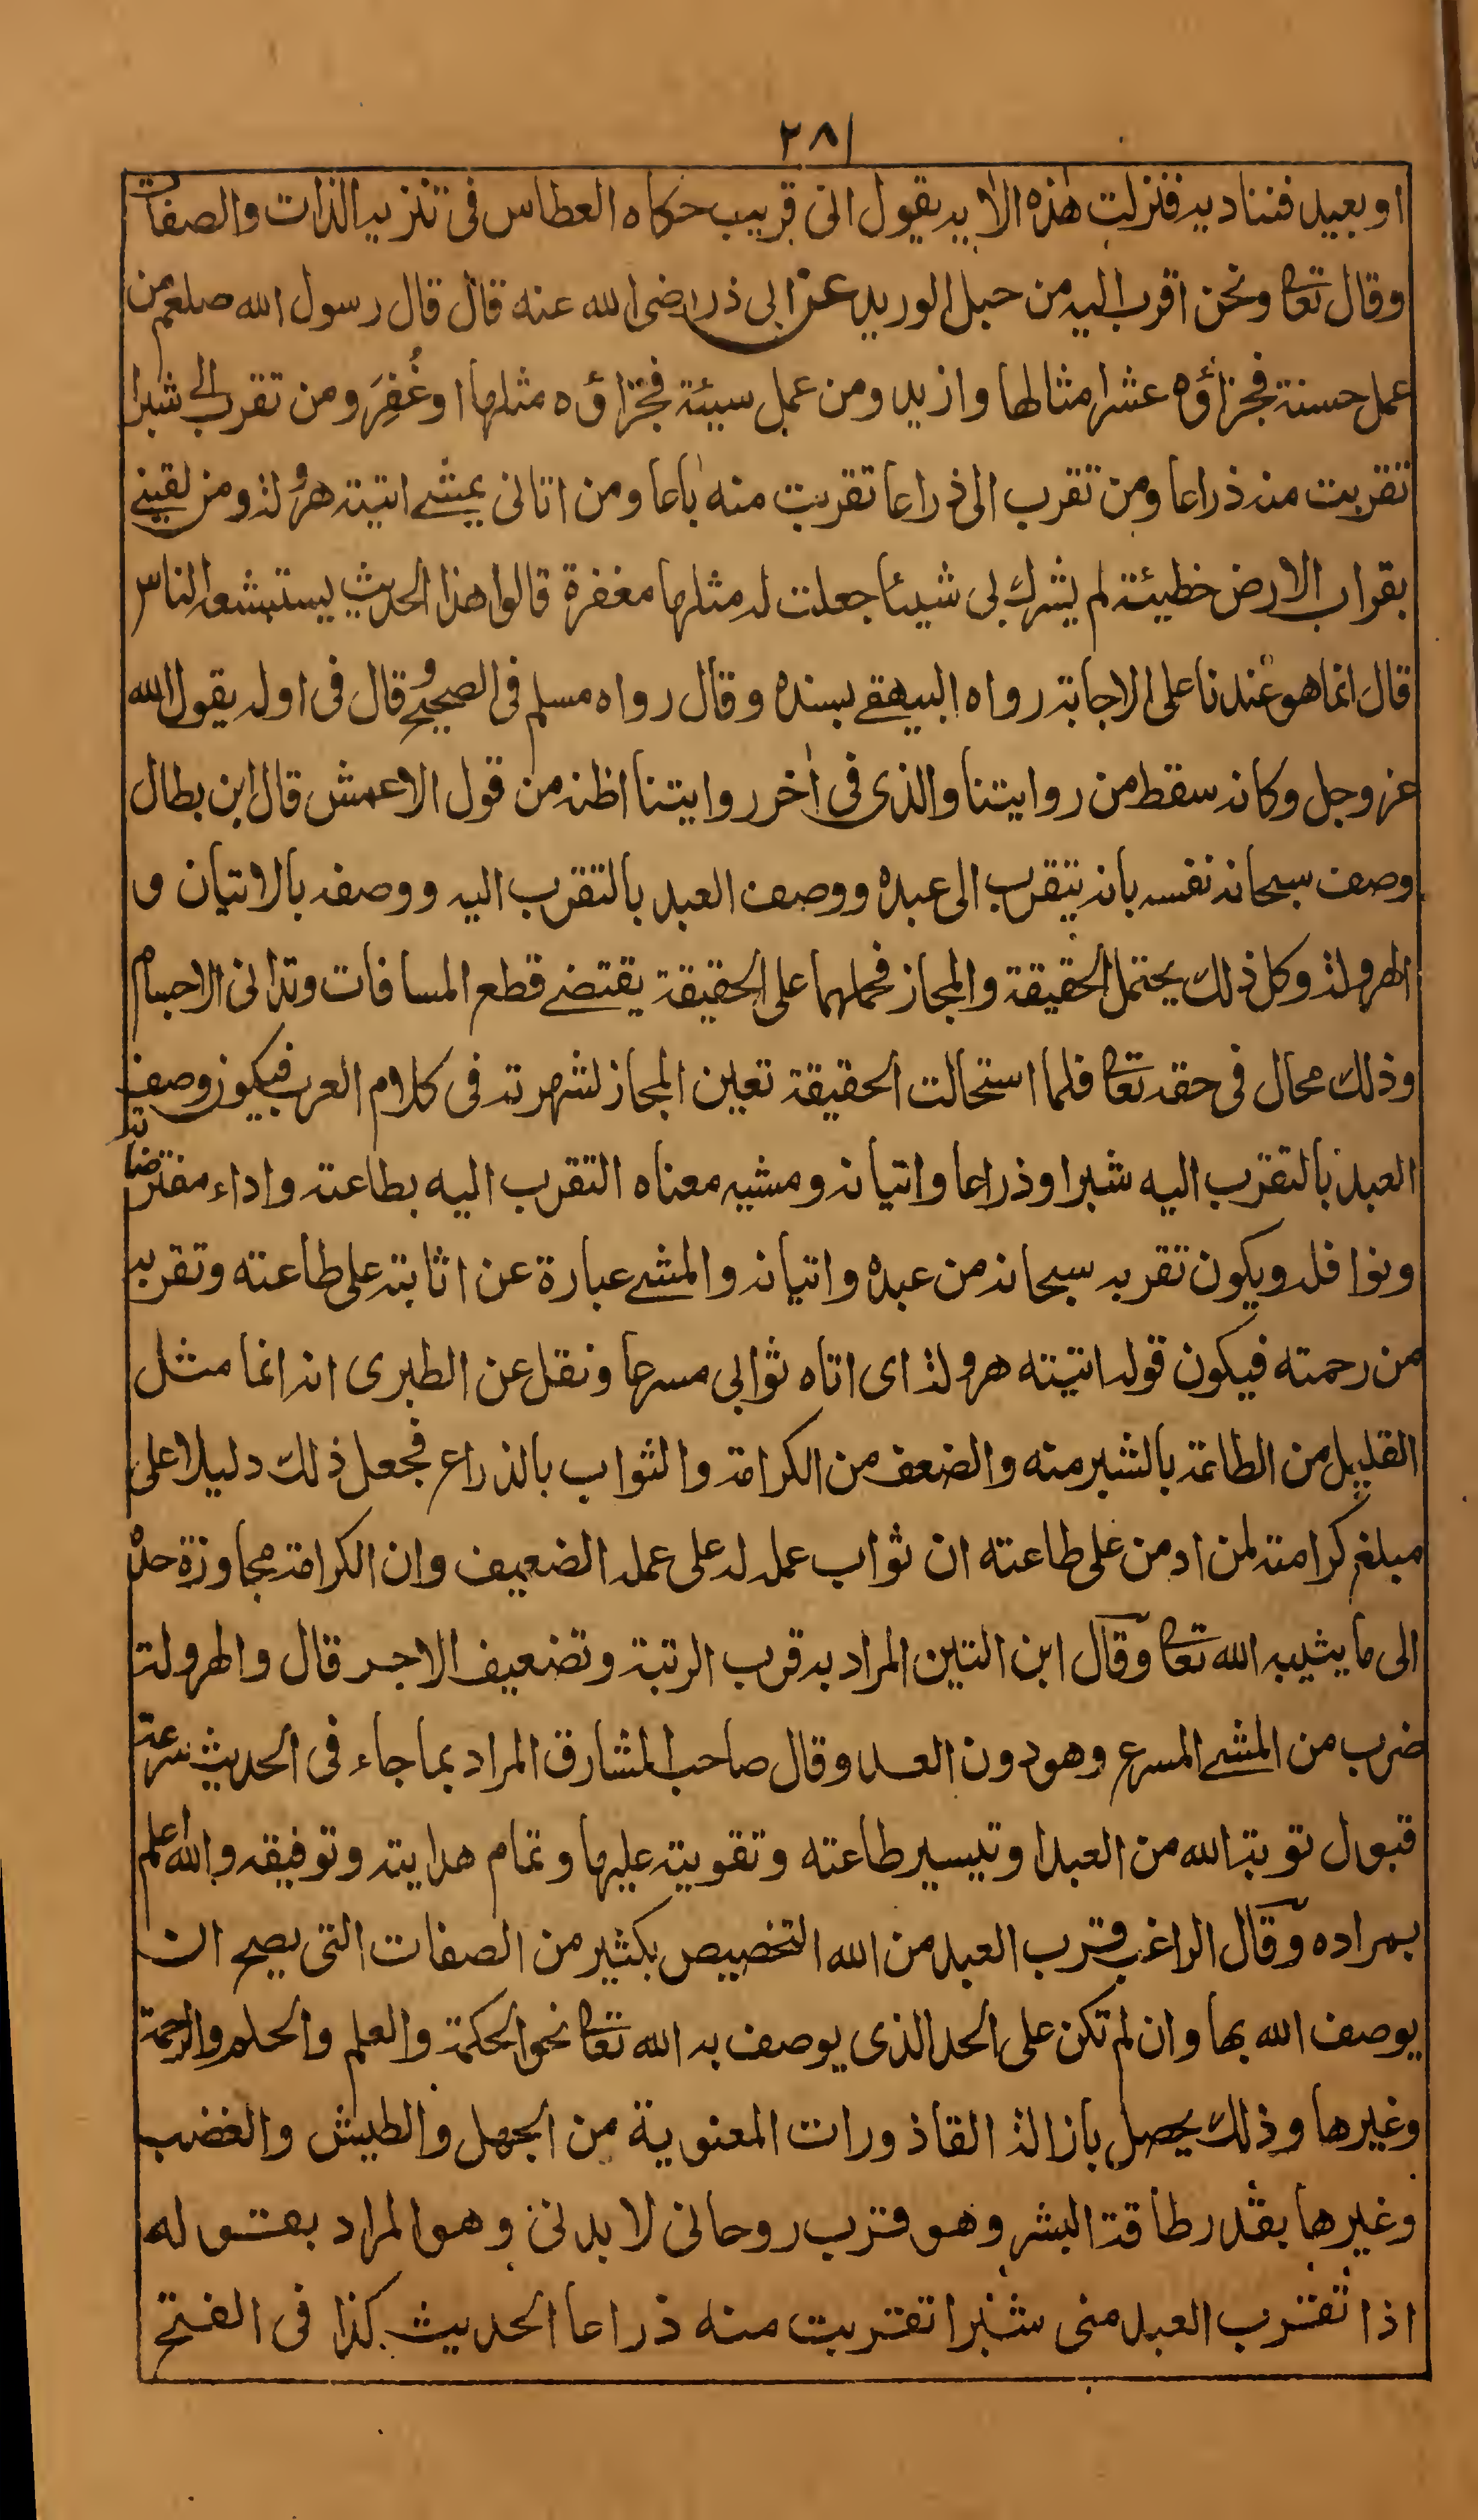 ٢٨١
او بعيد فنناديه فنزلت هذه الاية يقول انى قريب حكاه العطاس فى تنزيه الذات والصفات
وقال تعا ونحن اقرب اليه من حبل الوريد عن ابى ذر رضى الله عنه قال قال رسول الله صلعم من
عمل حسنة فجزاؤه عشر امثالها وازيد ومن عمل سيئة فجزاؤه مثلها او غُفِرَ ومن تقرب الى شبرا
تقربت منه ذراعا ومن تقرب الى ذراعا تقربت منه باعا ومن اتانى يمشے اتيته هرولة ومن لقينے
بقراب الارض خطيئة لم يشرك بى شيئا جعلت له مثلها مغفرة قالوا هذا الحديث يستبشعه الناس
قال انما هو عندنا على الاجابة رواه البيهقے بسنده وقال رواه مسلم فى الصحيح وقال فى اوله يقول الله
عز وجل وكانه سقط من روايتنا والذى فى اٰخر روايتنا اظنه من قول الاعمش قال ابن بطال
وصف سبحانه نفسه بانه يتقرب الى عبده ووصف العبد بالتقرب اليه ووصفه بالاتيان و
الهرولة وكل ذلك يحتمل الحقيقة والمجاز فحملها على الحقيقة يقتضے قطع المسافات وتدانى الاجسام
وذلك محال فى حقه تعا فلما استحالت الحقيقة تعين المجاز لشهرته فى كلام العرب فيكون وصف
العبد بالتقرب اليه شبرا وذراعا واتيانه ومشيه معناه التقرب اليه بطاعته واداء مفترضاته
ونوافله ويكون تقربه سبحانه من عبده واتيانه والمشے عبارة عن اثابته على طاعته وتقربه
من رحمته فيكون قوله اتيته هرولة اى اتاه ثوابى مسرعا ونقل عن الطبرى انه انما مثل
القليل من الطاعة بالشبر منه والضعف من الكرامة والثواب بالذراع فجعل ذلك دليلا على
مبلغ كرامته لمن ادمن على طاعته ان ثواب عمله له على عمله الضعيف وان الكرامة مجاوزة حده
الى ما يثيبه الله تعا وقال ابن التين المراد به قرب الرتبة وتضعيف الاجر قال والهرولة
ضرب من المشے المسرع وهو دون العدو وقال صاحب المشارق المراد بما جاء فى الحديث سرعة
قبول توبة الله من العبد او تيسير طاعته وتقويته عليها وتمام هدايته وتوفيقه والله اعلم
بمراده وقال الراغب قرب العبد من الله التخصيص بكثير من الصفات التى يصح ان
يوصف الله بها وان لم تكن على الحد الذى يوصف به الله تعا نحو الحكمة والعلم والحلم والرحمة
وغيرها وذلك يحصل بازالة القاذورات المعنوية من الجهل والطيش والغضب
وغيرها بقدر طاقة البشر وهو قرب روحانى لا بدنى وهو المراد بقوله
اذا تقرب العبد منى شبرا تقربت منه ذراعا الحديث كذا فى الفتح